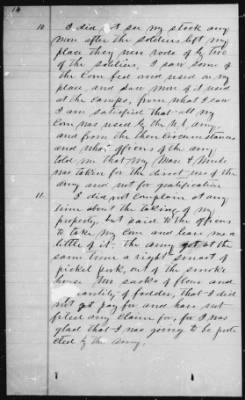 14
10 I did not see my stock any
more after the soldiers left my
place they were rode off by two
of the soldiers, I saw some of
the Corn fed and used on my
place, and saw more of it used
at the camps, from what I saw
I am satisfied that all my
Corn was used by the U.S. army
and from the then circumstances
and what officers of the army
told me that my Mare & Mule
was taken for the direct use of the
army and not for gratification
11. I did not complain at any
time about the taking of my
property, but said to the officers
to take my Corn and leave me a
little of it. The army got at the
same time a right smart of
pickel pork, out of the smoke
house two sacks of flour and
quantity of fodder, that I did
not get pay for and have not
filed any claim for, for I was
glad that I was going to be prote
cted by the army.